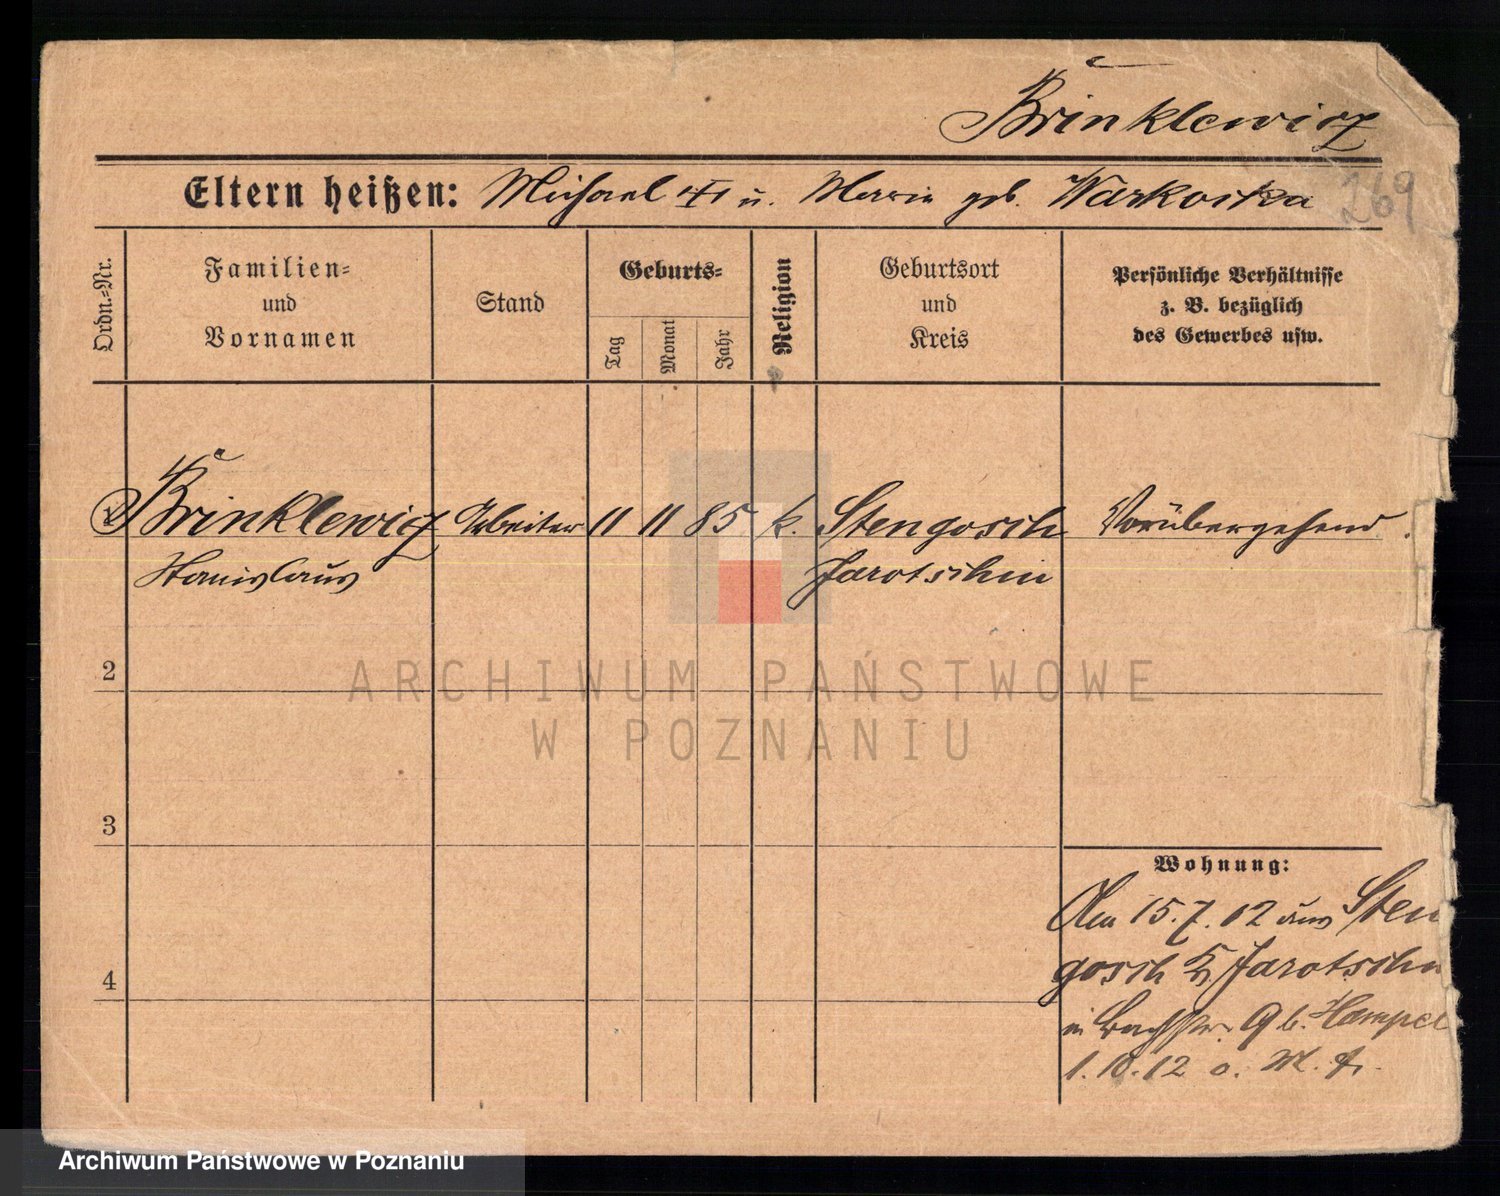 Brinklewicz
Eltern heißen: Michael u. Maria geb. Warkoska
269
Ordn.-Nr.
Familien-
und
Vornamen
Stand
Geburts-
Tag
Monat
Jahr
Religion
Geburtsort
und
Kreis
Persönliche Verhältnisse
z. B. bezüglich
des Gewerbes usw.
Brinklewicz Arbeiter 11 11 85 k. Stengosch Vorübergehend.
Stanislaus Jarotschin
2
ARCHIWUM PAŃSTWOWE
W POZNANIU
3
Wohnung:
Am 15.7.12 aus Sten
gosch Jarotschin
in Bachstr. 9 b. Hampel
4
1.10.12 o.
Archiwum Państwowe w Poznaniu